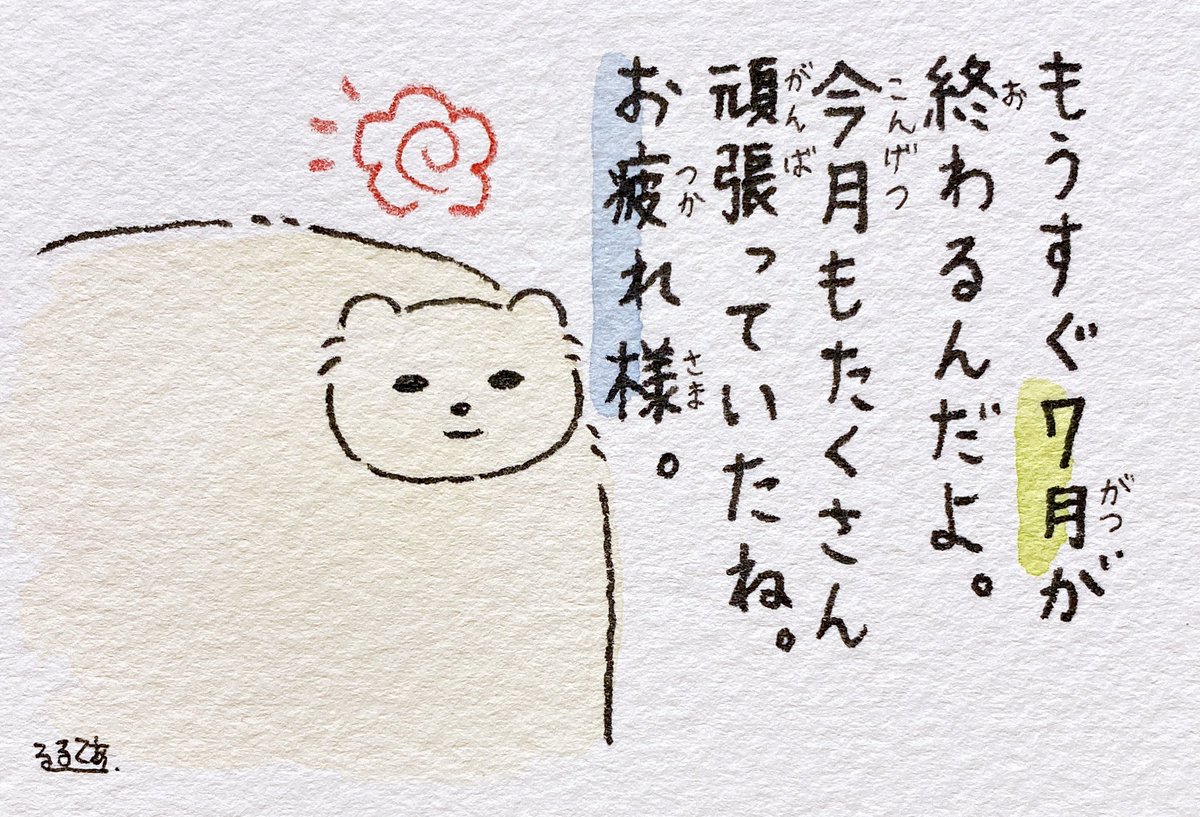 もうすぐ7月が
終わるんだよ。
今月もたくさん
頑張っていたね。
お疲れ様。
がつ
お
こんげつ
がんば
つか
さま
るるてあ.